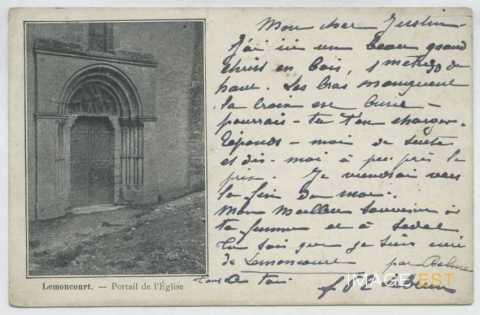 Mon cher Justin
J'ai ici un beau grand
Christ en bois, 1 metre 30 de
haut. Les bras manquent
la croix en
pourrais-tu t'en charger.
Réponds-moi de suite
et dis-moi à peu près le
prix. Je viendrai vers
la fin du mois.
Mon meilleur souvenir à
ta femme et à
Tu sais que je suis curé
de Lemoncourt par
à toi
Lemoncourt. — Portail de l'Église
IMAGE EST